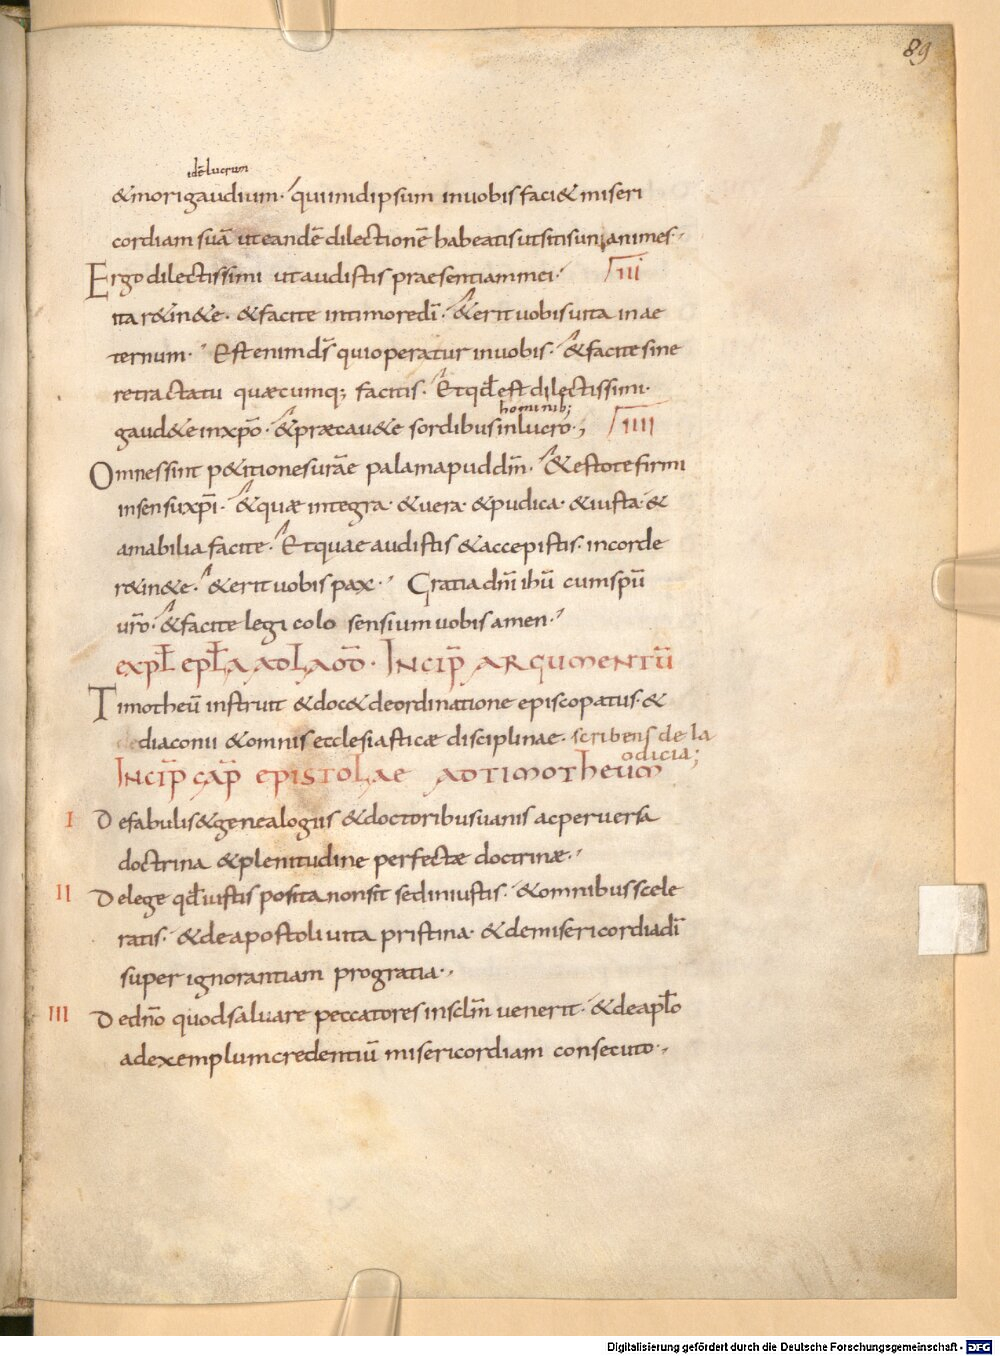 89
idē lucrum
& mori gaudium· qui in idipsum in uobis faci& miseri
cordiam suā ut eandē dilectionē habeatis ut sitis unianimes·
Ergo dilectissimi ut audistis praesentiam mei· IIII
ita r&in&e· & facite in timore dī· & erit uobis uita in ae
ternum· Est enim dS qui operatur in uobis· & facite sine
retractatu quæcumq; facitis· Et qđ est dilectissimi·
hominib;
gaud&e in xpō· & præcau&e sordibus in lucro·; IIIII
Omnes sint p&itiones uræ palam apud dm̄· & estote firmi
in sensu xpī· & quæ integra· & uera· & pudica· & iusta· &
amabilia facite· Et quae audistis & accepistis· in corde
r&in&e· & erit uobis pax· Gratia dnī ihū cum spū
urō· & facite legi colosensium uobis amen·
expł epła ad laod· Incip̄ argumentū
Timotheū instruit & doc& de ordinatione episcopatus· &
diaconii & omnis ecclesiasticæ disciplinae· scribens de la
odicia;
Incip̄ cap̄ epistolae ad timotheum
I De fabulis & genealogiis & doctoribus uanis ac peruersa
doctrina & plenitudine perfectæ doctrinæ·
II De lege qđ iustis posita non sit sed iniustis· & omnibus scele
ratis· & de apostoli uita pristina· & de misericordia dī
super ignorantiam pro gratia·
III De dnō quod saluare peccatores in sclm̄ uenerit· & de apło
ad exemplum credentiū misericordiam consecuto·
Digitalisierung gefördert durch die Deutsche Forschungsgemeinschaft - DFG